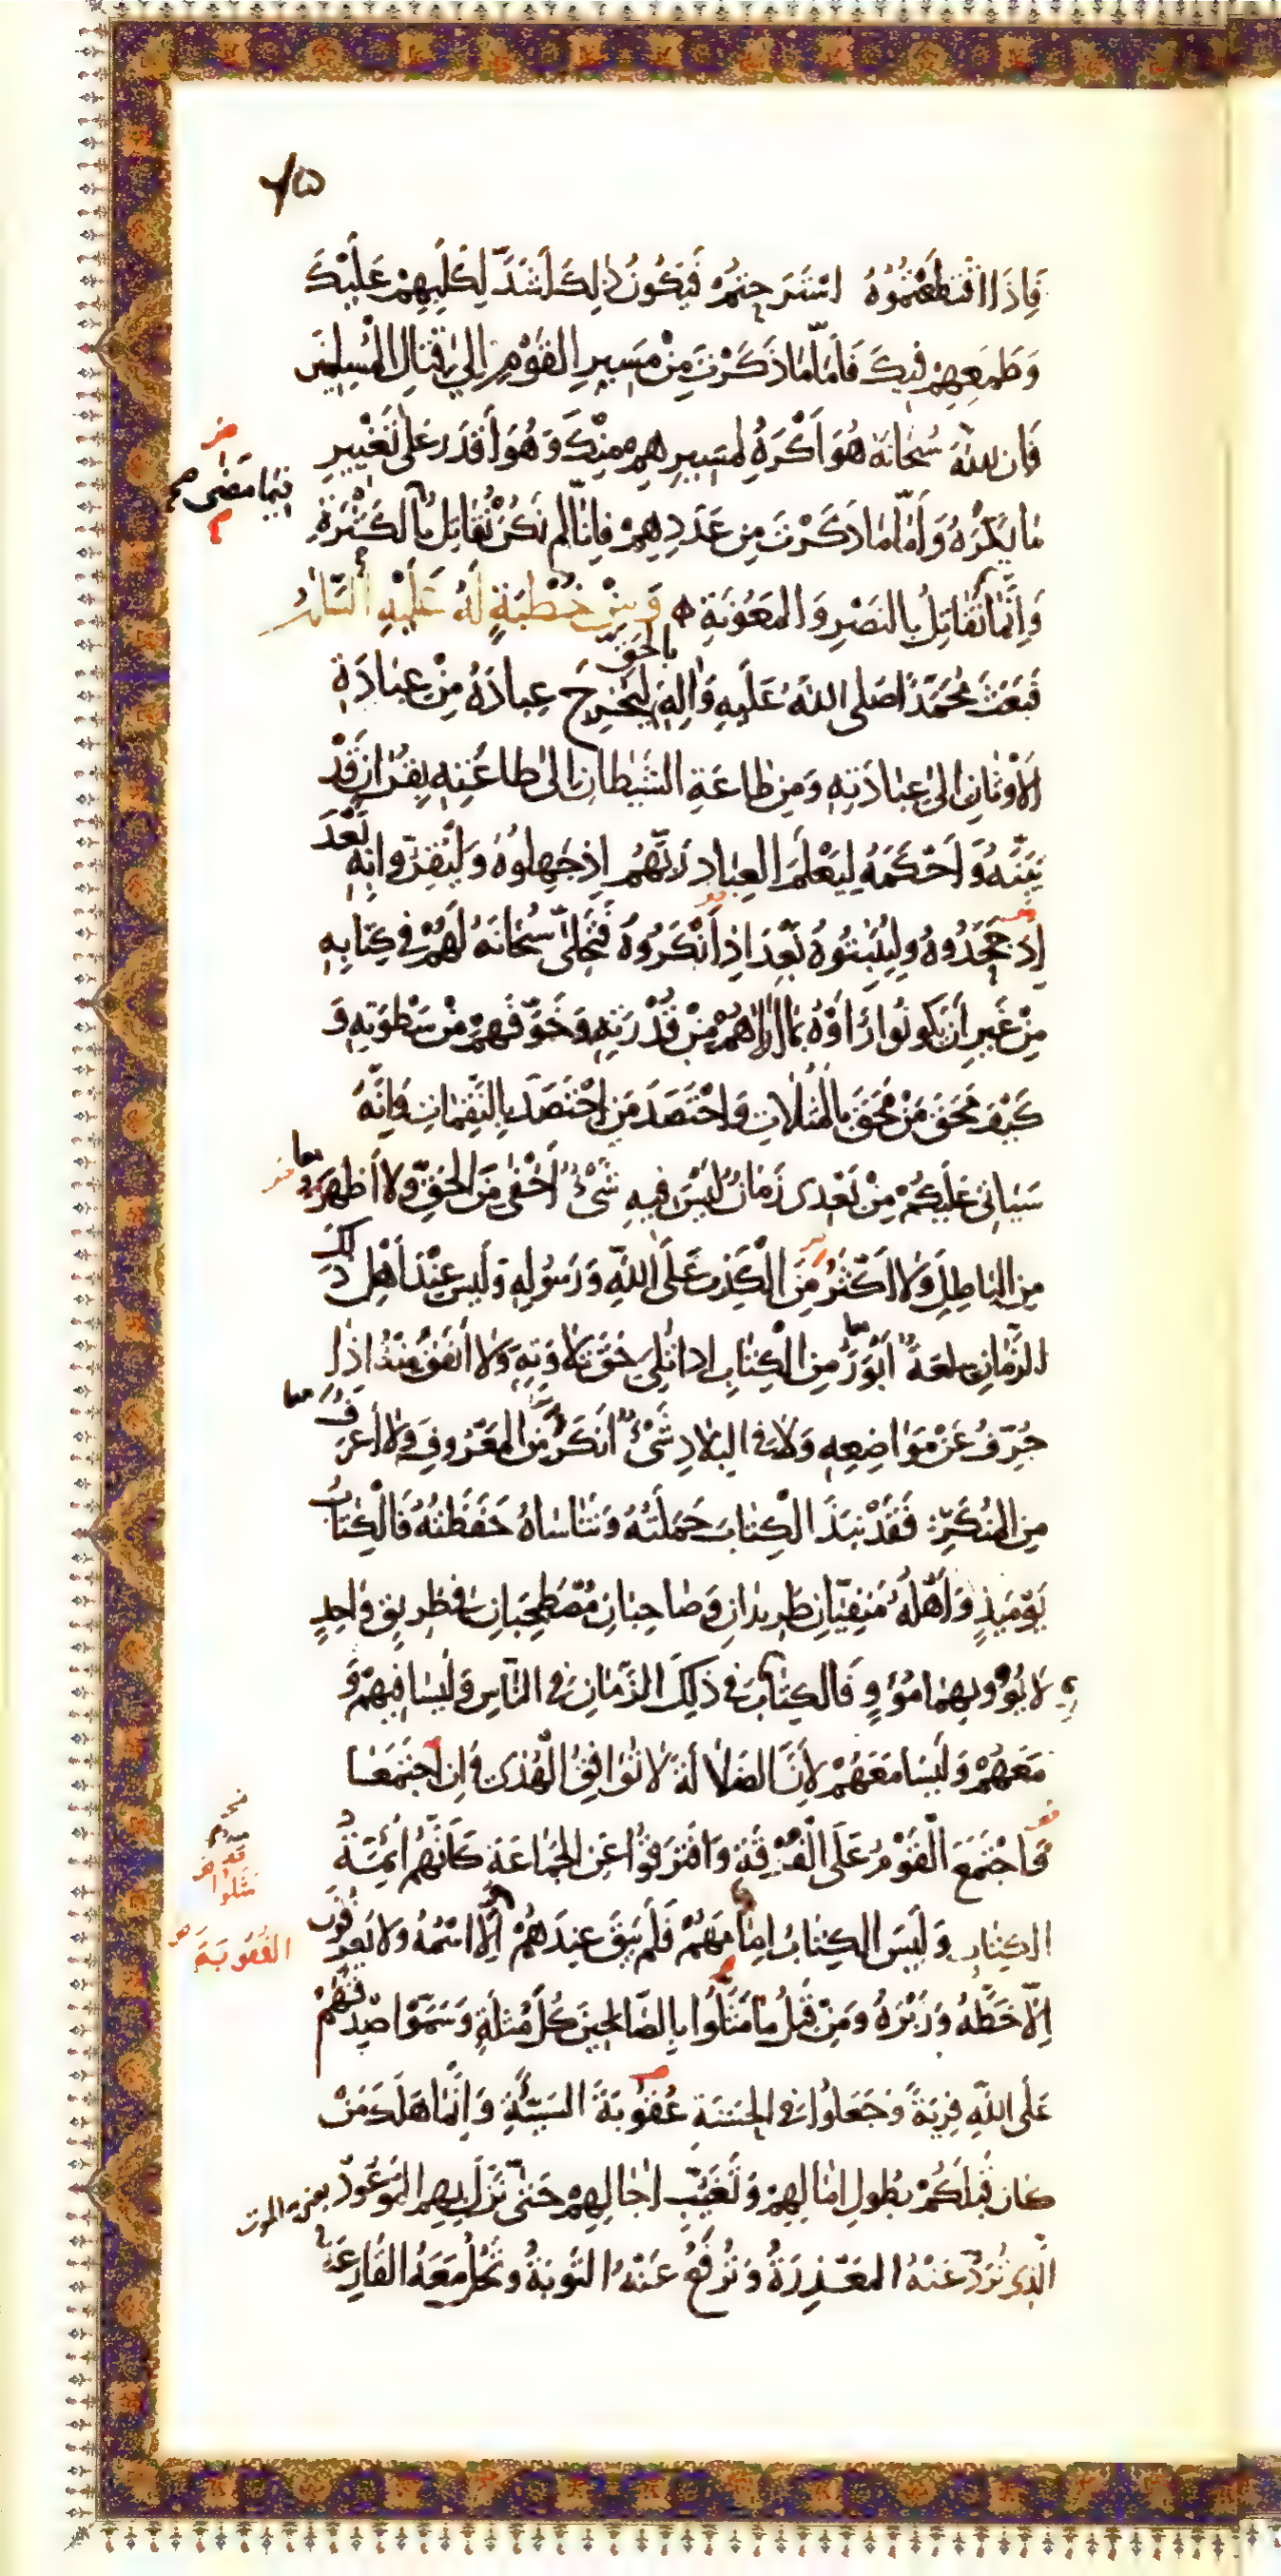 ٧٥
فَاِذَا اقْتَطَعْتُمُوْهُ اسْتَرَحْتُمْ فَيَكُونُ ذٰلِكَ اَشَدَّ لِكَلَبِهِمْ عَلَيْكَ
وَطَمَعِهِمْ فِيكَ فَاَمَّا مَا ذَكَرْتَ مِنْ مَسِيرِ الْقَوْمِ اِلٰى قِتَالِ الْمُسْلِمِيْنَ
فَاِنَّ اللّٰهَ سُبْحَانَهُ هُوَ اَكْرَهُ لِمَسِيرِهِمْ مِنْكَ وَهُوَ اَقْدَرُ عَلٰى تَغْيِيرِ
مَا يَكْرَهُ وَاَمَّا مَا ذَكَرْتَ مِنْ عَدَدِهِمْ فَاِنَّا لَمْ نَكُنْ نُقَاتِلُ بِالْكَثْرَةِ
فيما مضى
وَاِنَّمَا نُقَاتِلُ بِالنَّصْرِ وَالْمَعُوْنَةِ وَمِنْ خُطْبَةٍ لَهُ عَلَيْهِ السَّلٰمُ
فَبَعَثَ مُحَمَّدًا صَلَّى اللّٰهُ عَلَيْهِ وَاٰلِهِ بِالْحَقِّ لِيُخْرِجَ عِبَادَهُ مِنْ عِبَادَةِ
الْاَوْثَانِ اِلٰى عِبَادَتِهِ وَمِنْ طَاعَةِ الشَّيْطَانِ اِلٰى طَاعَتِهِ بِقُرْاٰنٍ قَدْ
بَيَّنَهُ وَاَحْكَمَهُ لِيَعْلَمَ الْعِبَادُ رَبَّهُمْ اِذْ جَهِلُوهُ وَلِيُقِرُّوا بِهِ بَعْدَ
اِذْ جَحَدُوهُ وَلِيُثْبِتُوهُ بَعْدَ اِذْ اَنْكَرُوهُ فَتَجَلّٰى سُبْحَانَهُ لَهُمْ فِى كِتَابِهِ
مِنْ غَيْرِ اَنْ يَكُونُوا رَاَوْهُ بِمَا اَرَاهُمْ مِنْ قُدْرَتِهِ وَخَوَّفَهُمْ مِنْ سَطْوَتِهِ وَ
كَيْفَ مَحَقَ مَنْ مَحَقَ بِالْمَثُلَاتِ وَاحْتَصَدَ مَنِ احْتَصَدَ بِالنَّقِمَاتِ وَاِنَّهُ
سَيَاْتِى عَلَيْكُمْ مِنْ بَعْدِى زَمَانٌ لَيْسَ فِيهِ شَىْءٌ اَخْفٰى مِنَ الْحَقِّ وَلَا اَظْهَرَ
مِنَ الْبَاطِلِ وَلَا اَكْثَرَ مِنَ الْكَذِبِ عَلَى اللّٰهِ وَرَسُولِهِ وَلَيْسَ عِنْدَ اَهْلِ ذٰلِكَ
الزَّمَانِ سِلْعَةٌ اَبْوَرَ مِنَ الْكِتَابِ اِذَا تُلِىَ حَقَّ تِلَاوَتِهِ وَلَا اَنْفَقَ مِنْهُ اِذَا
حُرِّفَ عَنْ مَوَاضِعِهِ وَلَا فِى الْبِلَادِ شَىْءٌ اَنْكَرَ مِنَ الْمَعْرُوفِ وَلَا اَعْرَفَ
مِنَ الْمُنْكَرِ فَقَدْ نَبَذَ الْكِتَابَ حَمَلَتُهُ وَتَنَاسَاهُ حَفَظَتُهُ فَالْكِتَابُ
يَوْمَئِذٍ وَاَهْلُهُ مَنْفِيَّانِ طَرِيدَانِ وَصَاحِبَانِ مُصْطَحِبَانِ فِى طَرِيقٍ وَاحِدٍ
لَا يُؤْوِيهِمَا مُؤْوٍ فَالْكِتَابُ فِى ذٰلِكَ الزَّمَانِ فِى النَّاسِ وَلَيْسَا فِيهِمْ وَ
مَعَهُمْ وَلَيْسَا مَعَهُمْ لِاَنَّ الضَّلَالَةَ لَا تُوَافِقُ الْهُدٰى وَاِنِ اجْتَمَعَا
فَاجْتَمَعَ الْقَوْمُ عَلَى الْفُرْقَةِ وَافْتَرَقُوا عَنِ الْجَمَاعَةِ كَاَنَّهُمْ اَئِمَّةُ
الْكِتَابِ وَلَيْسَ الْكِتَابُ اِمَامَهُمْ فَلَمْ يَبْقَ عِنْدَهُمْ اِلَّا اسْمُهُ وَلَا يَعْرِفُونَ
العُقُوبَةَ
اِلَّا خَطَّهُ وَزَبْرَهُ وَمِنْ قَبْلُ مَا مَثَّلُوا بِالصَّالِحِينَ كُلَّ مُثْلَةٍ وَسَمَّوْا صِدْقَهُمْ
عَلَى اللّٰهِ فِرْيَةً وَجَعَلُوا فِى الْحَسَنَةِ عُقُوبَةَ السَّيِّئَةِ وَاِنَّمَا هَلَكَ مَنْ
كَانَ قَبْلَكُمْ بِطُولِ اٰمَالِهِمْ وَتَغَيُّبِ اٰجَالِهِمْ حَتّٰى نَزَلَ بِهِمُ الْمَوْعُودُ يعنى الموت
الَّذِى تُرَدُّ عَنْهُ الْمَعْذِرَةُ وَتُرْفَعُ عَنْهُ التَّوْبَةُ وَتَحُلُّ مَعَهُ الْقَارِعَةُ